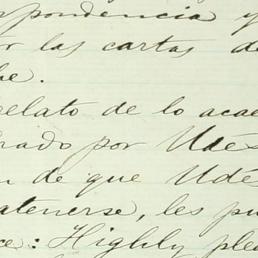 spondencia y
or las cartas de
be.
relato de lo acae
rado por Udes
n de que Udé
atenerse, les pu
ce: Highly plea